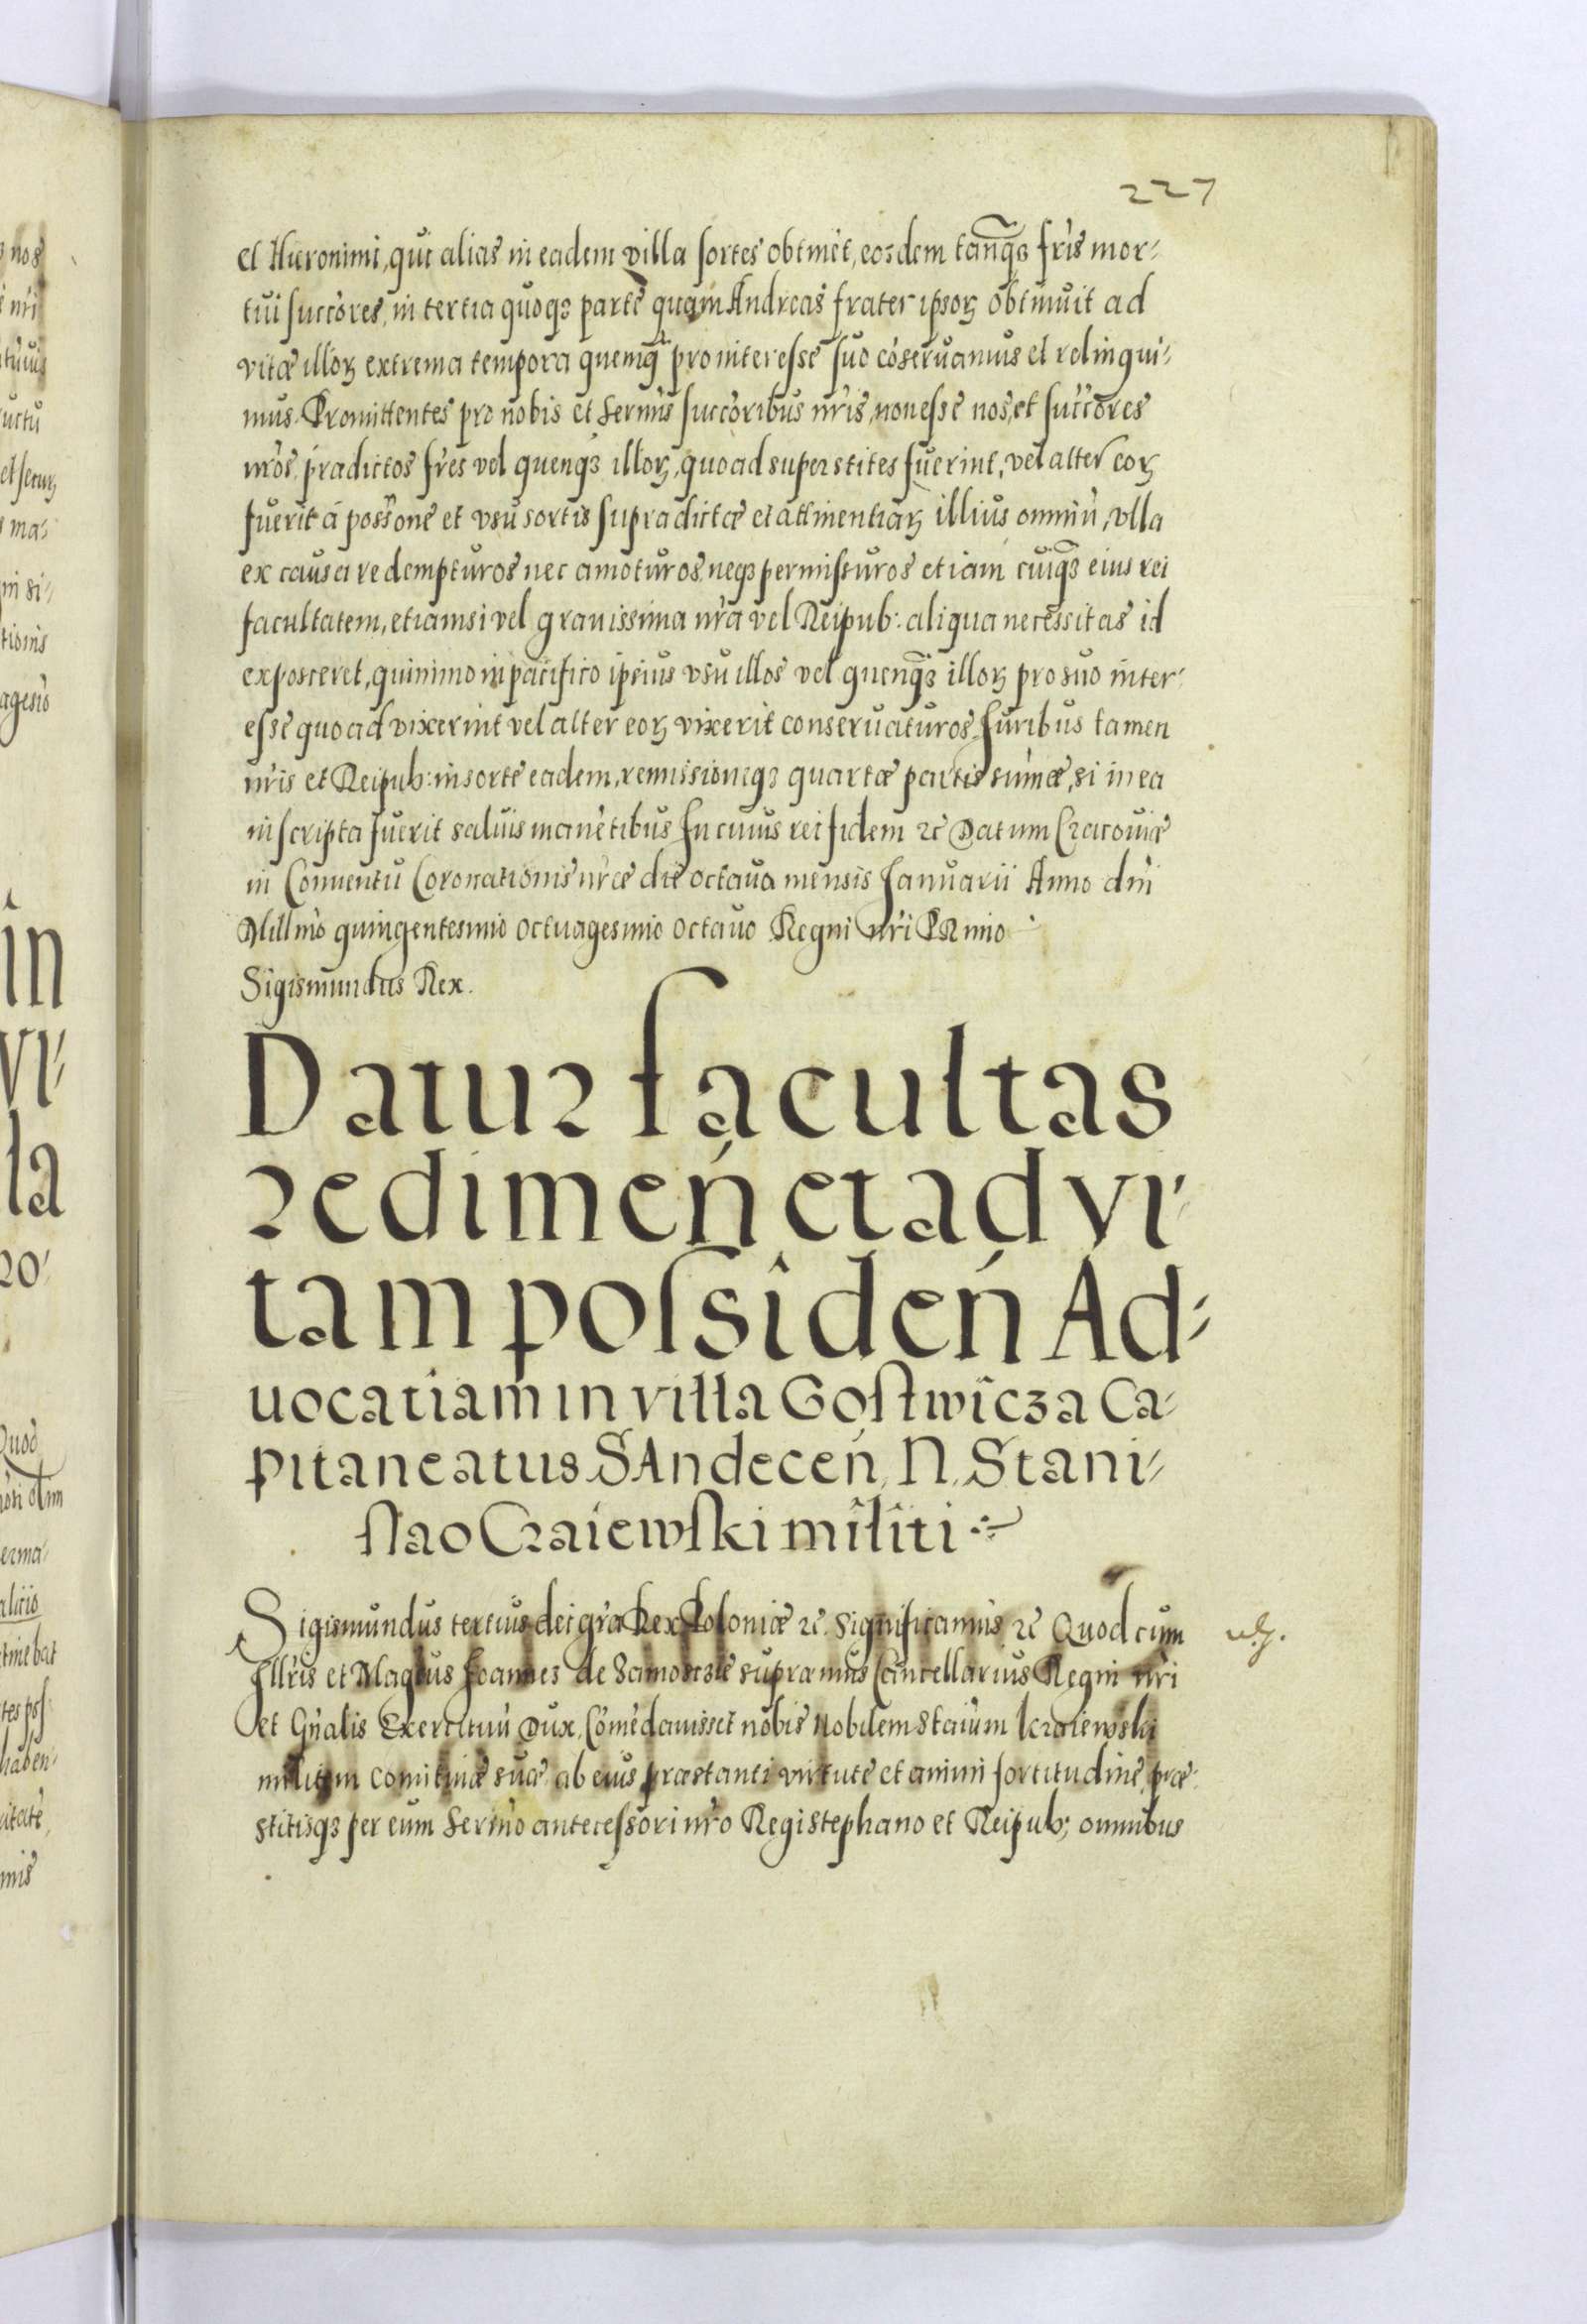 227
et Hieronimi, qui alias in eadem villa sortes obtinēt, eosdem tanq̃ȝ fr̃is mor-
tui succõres, in tertia quoqȝ parte quam Andreas frater ipsorꝫ obtinuit ad
vitæ illorꝫ extrema tempora quemq̃ pro interesse suo cõseruamus et relinqui-
mus. Promittentes pro nobis et Sermĩs succõribus nr̃is, non esse nos, et succõres
nr̃os, p̃radictos fr̃es vel quenqȝ illorꝫ, quoad superstites fuerint, vel alter eorꝫ
fuerit à poss̃one et vsu sortis supradictæ et attinentiarꝫ illius omniũ, vlla
ex causa redempturos nec amoturos, neqȝ permissuros etiam cuiq̃ȝ eius rei
facultatem, etiamsi vel grauissima nr̃a vel Reipub: aliqua necessitas id
exposceret, quinimo in pacifico ipsius vsu illos vel quenq̃ȝ illorꝫ pro suo inter-
esse quoad vixerint vel alter eorꝫ vixerit conseruaturos. Juribus tamen
nr̃is et Reipub: in sorte eadem, remissioneqȝ quartæ partis sum̃æ, si in ea
inscripta fuerit saluis manẽtibus. In cuius rei fidem ꝛc̃ Datum Cracouiæ
in Conuentu Coronationis nr̃æ die octaua mensis Januarii Anno dñi
Millm̃o quingentesimo octuagesimo octauo Regni nr̃i Primo
Sigismundus Rex.
Datur facultas
redimeń et ad vi-
tam possideń Ad-
uocatiam in villa Gostwicza Ca-
pitaneatus SAndeceń, N. Stani-
slao Craiewski militi
Sigismundus tertius dei gr̃a Rex Poloniæ ꝛc̃. Significamus ꝛc̃ Quod cum
Jllr̃is et Mag̃cus Joannes de Samoscie supremus Cancellarius Regni nr̃i
et Gñalis Exercituũ Dux, Cõmẽdauisset nobis Nobilem Staĩum Kraiewski
militem comitiuæ suæ, ab eius præstanti virtute et animi fortitudine, præ-
stitisqȝ per eum Sermõ antecessori nr̃o Regi Stephano et Reipub: omnibus